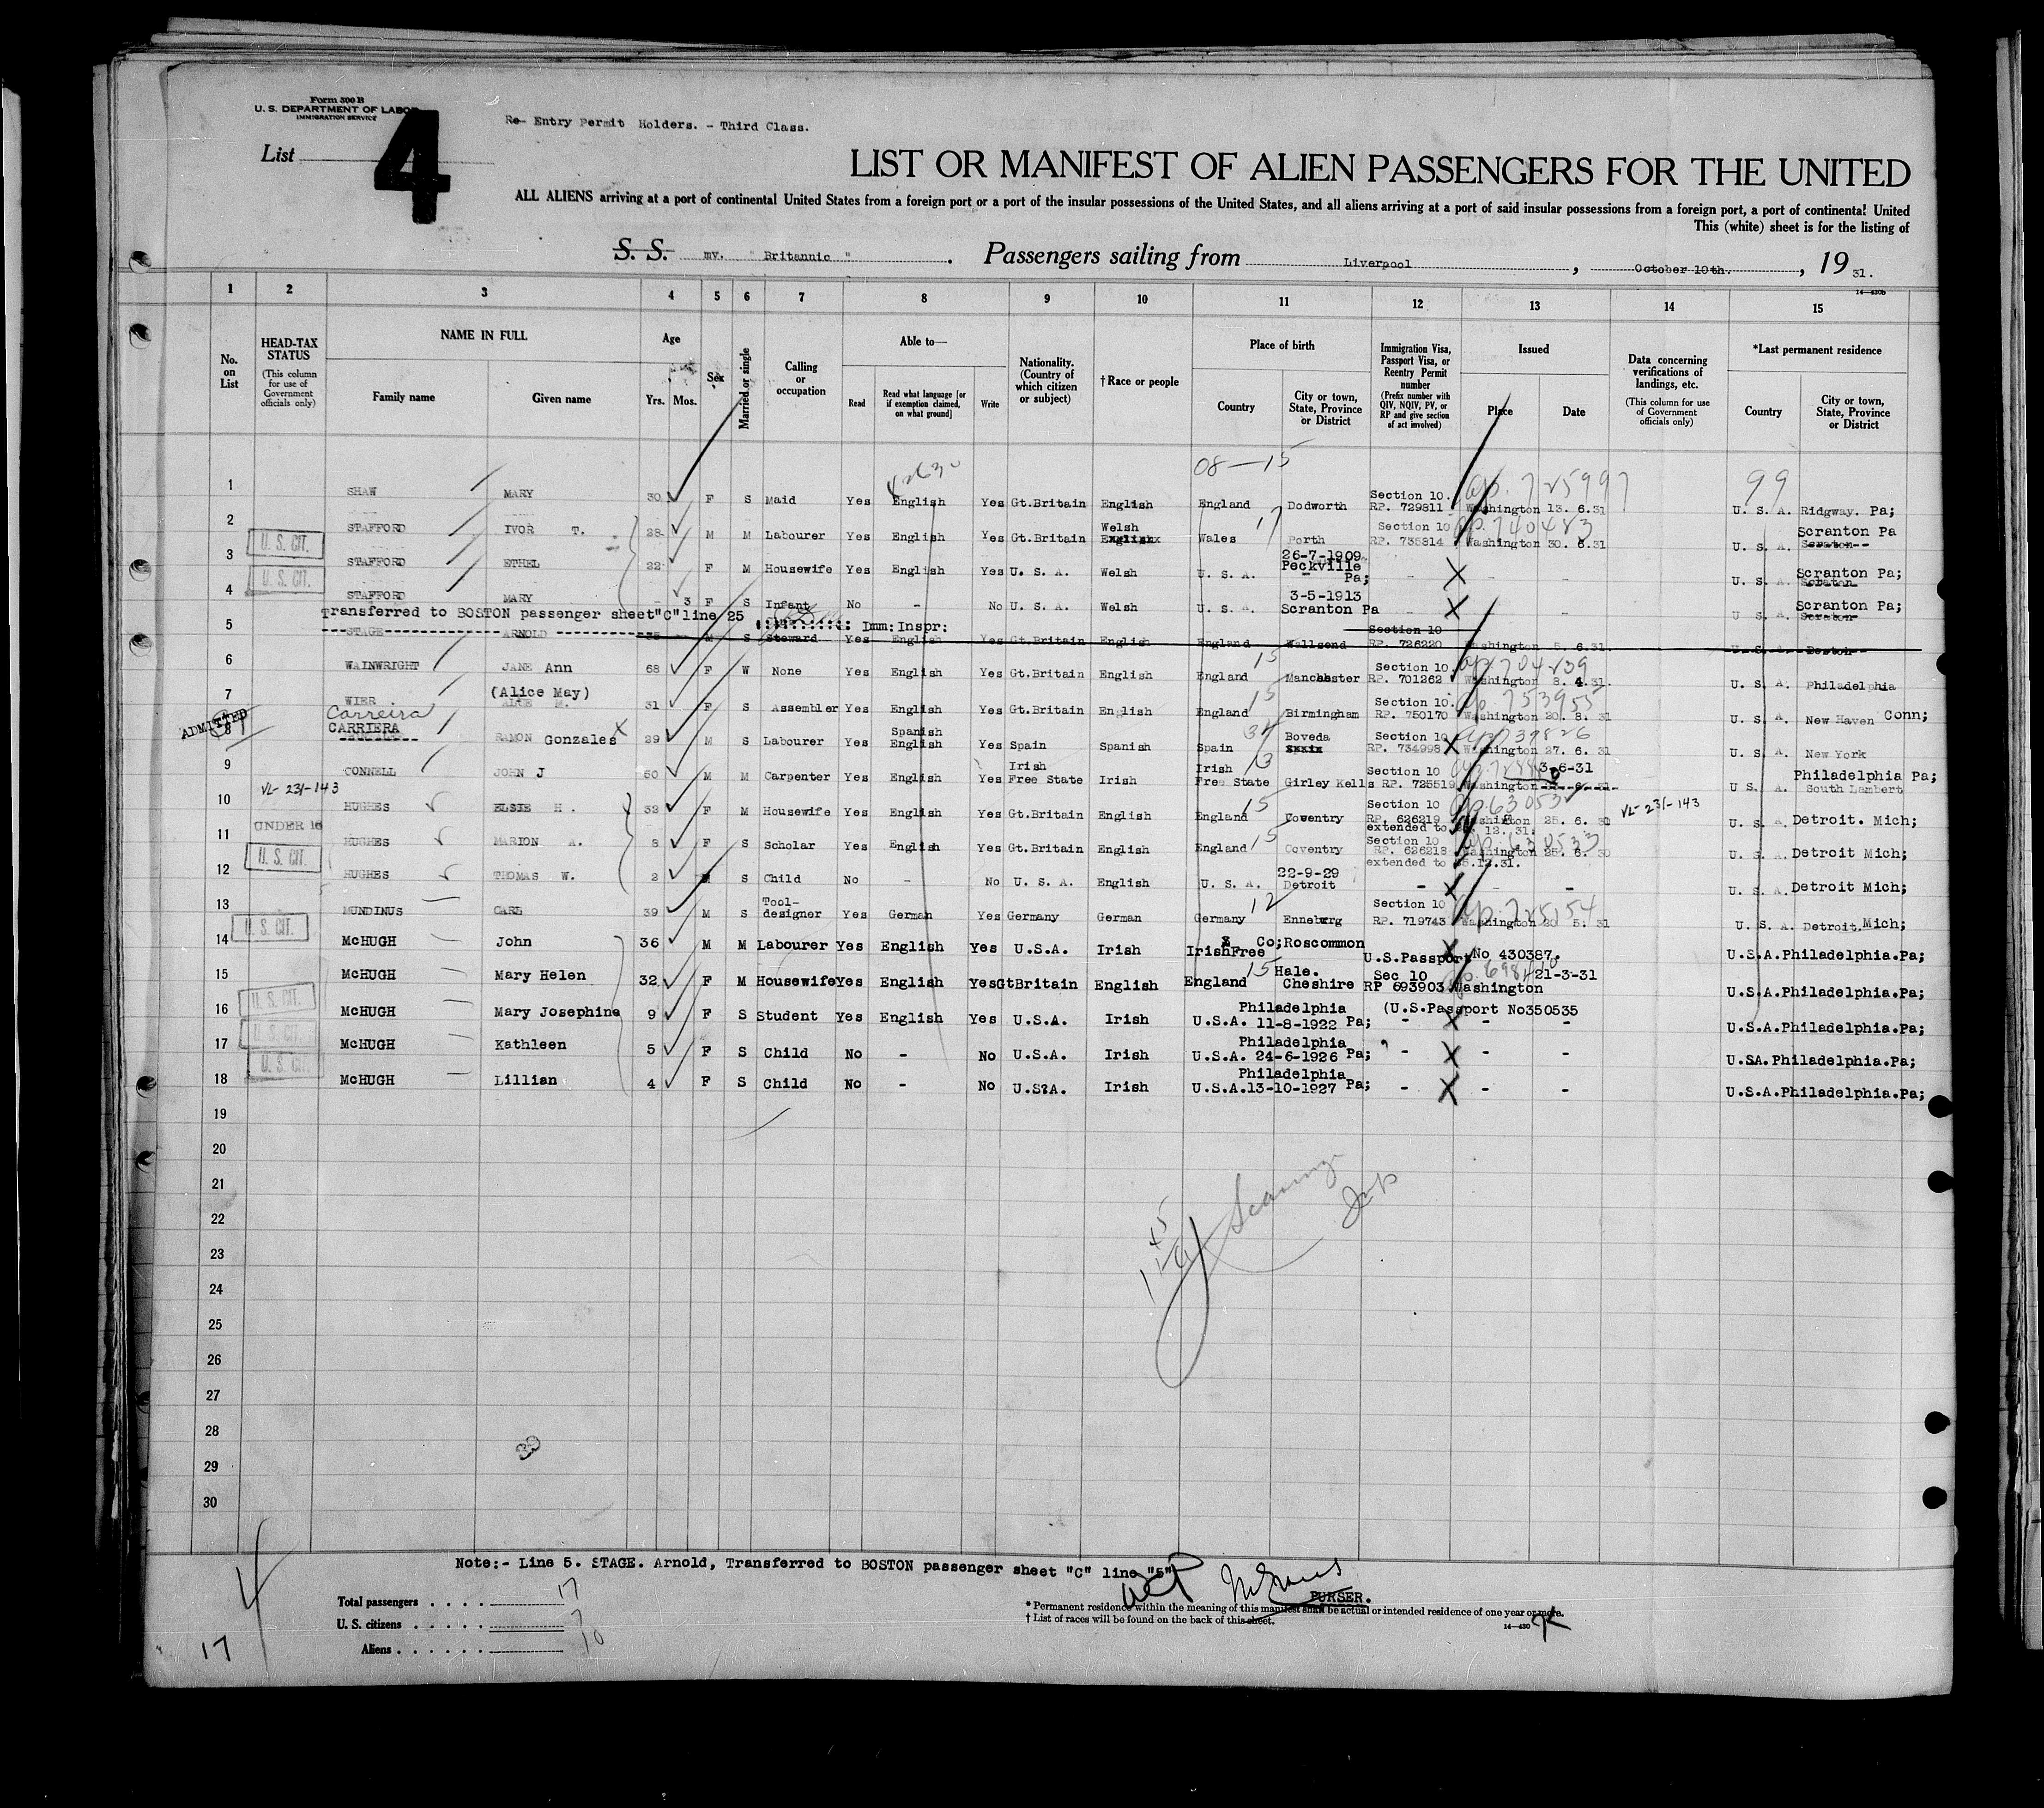 Form 500 B
U. S. DEPARTMENT OF LABOR
IMMIGRATION SERVICE
Re- Entry Permit Holders. - Third Class.
List 4
LIST OR MANIFEST OF ALIEN PASSENGERS FOR THE UNITED
ALL ALIENS arriving at a port of continental United States from a foreign port or a port of the insular possessions of the United States, and all aliens arriving at a port of said insular possessions from a foreign port, a port of continental United
This (white) sheet is for the listing of
S. S. mv. "Britannic" . Passengers sailing from Liverpool , October 10th. , 19 31.
14—430b
1 2 3 4 5 6 7 8 9 10 11 12 13 14 15
No. on List
HEAD-TAX STATUS (This column for use of Government officials only)
NAME IN FULL
Family name Given name
Age
Yrs. Mos.
Sex
Married or single
Calling or occupation
Able to—
Read Read what language [or if exemption claimed, on what ground] Write
Nationality. (Country of which citizen or subject)
†Race or people
Place of birth
Country City or town, State, Province or District
Immigration Visa, Passport Visa, or Reentry Permit number (Prefix number with QIV, NQIV, PV, or RP and give section of act involved)
Issued
Place Date
Data concerning verifications of landings, etc. (This column for use of Government officials only)
*Last permanent residence
Country City or town, State, Province or District
08—15
99
1 SHAW MARY 30 F S Maid Yes English Yes Gt.Britain English England Dodworth Section 10. RP. 729811 Washington 13. 6.31 U. S. A. Ridgway. Pa;
2 STAFFORD IVOR T. 28 M M Labourer Yes English Yes Gt.Britain Welsh Englishx Wales 17 Porth Section 10 RP. 735814 Washington 30. 6.31 U. S. A. Scranton Pa Scraton
U. S. CIT.
3 STAFFORD ETHEL 22 F M Housewife Yes English Yes U. S. A. Welsh U. S. A. 26-7-1909 Peckville Pa; - X - - U. S. A. Scranton Pa; Scraton
U. S. CIT.
4 STAFFORD MARY - 3 F S Infant No - No U. S. A. Welsh U. S. A. 3-5-1913 Scranton Pa X U S A. Scranton Pa; Scraton
Transferred to BOSTON passenger sheet"C"line 25 Imm:Inspr:
5 STAGE ARNOLD 35 M S Steward Yes English Yes Gt.Britain English England Wallsend Section 10 RP. 726220 Washington 5. 6.31 U. S. A. Boston
6 WAINWRIGHT JANE Ann 68 F W None Yes English Yes Gt.Britain English England 15 Manchester Section 10. RP. 701262 Washington 8. 4.31. U. S. A. Philadelphia
7 WIER (Alice May) ALCE M. 31 F S Assembler Yes English Yes Gt.Britain English England 15 Birmingham Section 10. RP. 750170 Washington 20. 8. 31 U. S. A. New Haven Conn;
ADMITTED
8 Carreira CARRIERA RAMON Gonzales X 29 M S Labourer Yes Spanish English Yes Spain Spanish Spain Boveda Section 10 RP. 734998 X Washington 27. 6. 31 U. S. A. New York
9 CONNELL JOHN J 50 M M Carpenter Yes English Yes Irish Free State Irish Irish Free State 13 Girley Kells Section 10 RP. 725519 Washington 3-6-31 U S. A. Philadelphia Pa; South Lambert
VL-231-143
10 HUGHES ELSIE H. 32 F M Housewife Yes English Yes Gt.Britain English England 15 Coventry Section 10 RP. 626219 Washington 25. 6. 30 extended to 12. 31. VL-231-143 U. S. A. Detroit. Mich;
UNDER 16
11 HUGHES MARION A. 8 F S Scholar Yes English Yes Gt.Britain English England 15 Coventry Section 10 RP. 626218 Washington 25. 6. 30 extended to 25.12.31. U. S. A. Detroit Mich;
U. S. CIT.
12 HUGHES THOMAS W. 2 M S Child No - No U. S. A. English U. S. A. 22-9-29 Detroit - X - - U. S. A. Detroit Mich;
13 MUNDINUS CARL 39 M S Tool-designer Yes German Yes Germany German Germany 12 Enneberg Section 10 RP. 719743 Washington 20 5. 31 U. S. A. Detroit. Mich;
U. S. CIT.
14 McHUGH John 36 M M Labourer Yes English Yes U.S.A. Irish IrishFree Co;Roscommon U.S.Passport No 430387. U.S.A.Philadelphia.Pa;
15 McHUGH Mary Helen 32 F M Housewife Yes English Yes GtBritain English England 15 Hale. Cheshire Sec 10 RP 693903 Washington 21-3-31 U.S.A.Philadelphia.Pa;
U. S. CIT.
16 McHUGH Mary Josephine 9 F S Student Yes English Yes U.S.A. Irish U.S.A. Philadelphia 11-8-1922 Pa; (U.S.Passport No350535 - X - - U.S.A.Philadelphia.Pa;
U. S. CIT.
17 McHUGH Kathleen 5 F S Child No - No U.S.A. Irish U.S.A. Philadelphia 24-6-1926 Pa; " - X - - U.SA.Philadelphia.Pa;
U. S. CIT.
18 McHUGH Lillian 4 F S Child No - No U.S?A. Irish U.S.A. Philadelphia 13-10-1927 Pa; - X - - U.S.A.Philadelphia.Pa;
19
20
21
22
23
24
25
26
27
28
29
30
Note:- Line 5. STAGE. Arnold, Transferred to BOSTON passenger sheet "C" line "5"
PURSER.
Total passengers . . . . 17
U. S. citizens . . . . . 7
Aliens . . . . . . 10
* Permanent residence within the meaning of this manifest shall be actual or intended residence of one year or more.
† List of races will be found on the back of this sheet.
14—430
4
17